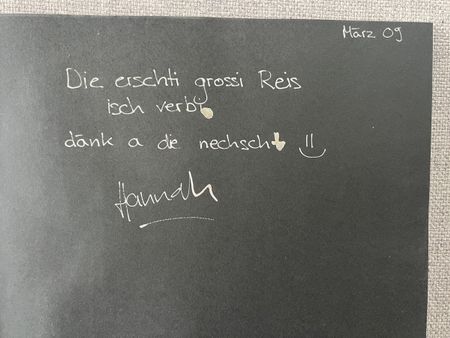 März 09
Die erschti grossi Reis
isch verbi
dänk a die nechscht
Hannah